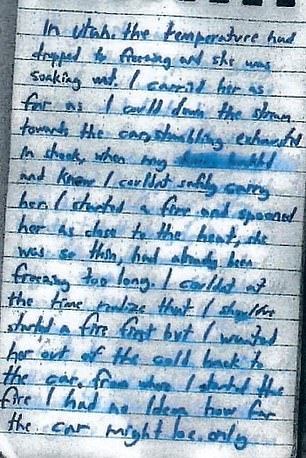 In Utah. the temperature had
dropped to freezing and she was
soaking wet. I carried her as
far as I could down the stream
towards the car, stumbling exhausted
in shock, when my
and knew I couldnt safely carry
her. I started a fire and spooned
her as close to the heat, she
was so thin, had already been
freezing too long. I couldnt at
the time realize that I should've
started a fire first but I wanted
her out of the cold back to
the car. from where I started the
fire I had no Idea how far
the car might be. only